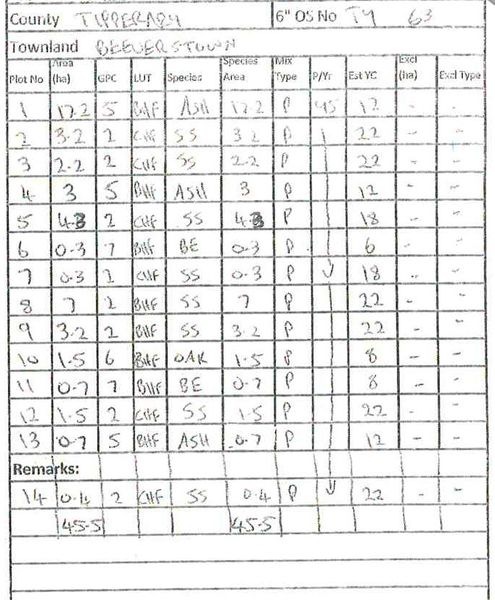 County TIPPERARY 6" OS No TY 63
Townland BEEVERSTOWN
Plot No Area (ha) GPC LUT Species Species Area Mix Type P/Yr Est YC Excl (ha) Excl Type
1 17.2 5 BHF ASH 17.2 P 95 12 - -
2 3.2 2 CHF SS 3.2 P 22 - -
3 2.2 2 CHF SS 2.2 P 22 - -
4 3 5 BHF ASH 3 P 12 - -
5 4.3 2 CHF SS 4.3 P 18 - -
6 0.3 7 BHF BE 0.3 P 6 - -
7 0.3 2 CHF SS 0.3 P 18 - -
8 7 2 BHF SS 7 P 22 - -
9 3.2 2 BHF SS 3.2 P 22 - -
10 1.5 6 BHF OAK 1.5 P 8 - -
11 0.7 7 BHF BE 0.7 P 8 - -
12 1.5 2 CHF SS 1.5 P 22 - -
13 0.7 5 BHF ASH 0.7 P 12 - -
Remarks:
14 0.4 2 CHF SS 0.4 P 22 - -
45.5 45.5